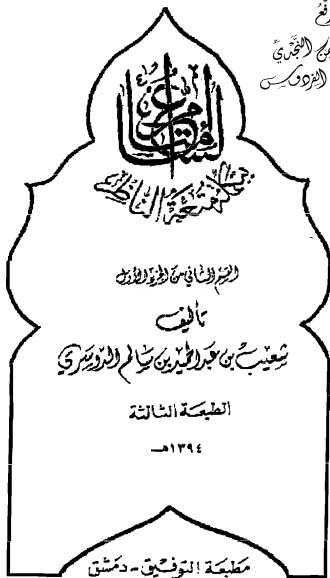 النجدي
الفردوس
إمتاع السامر
بتكملة متعة الناظر
القسم الثاني من الجزء الأول
تأليف
شعيب بن عبد الحميد بن سالم الدوسري
الطبعة الثالثة
١٣٩٤هـ
مطبعة التوفيق - دمشق